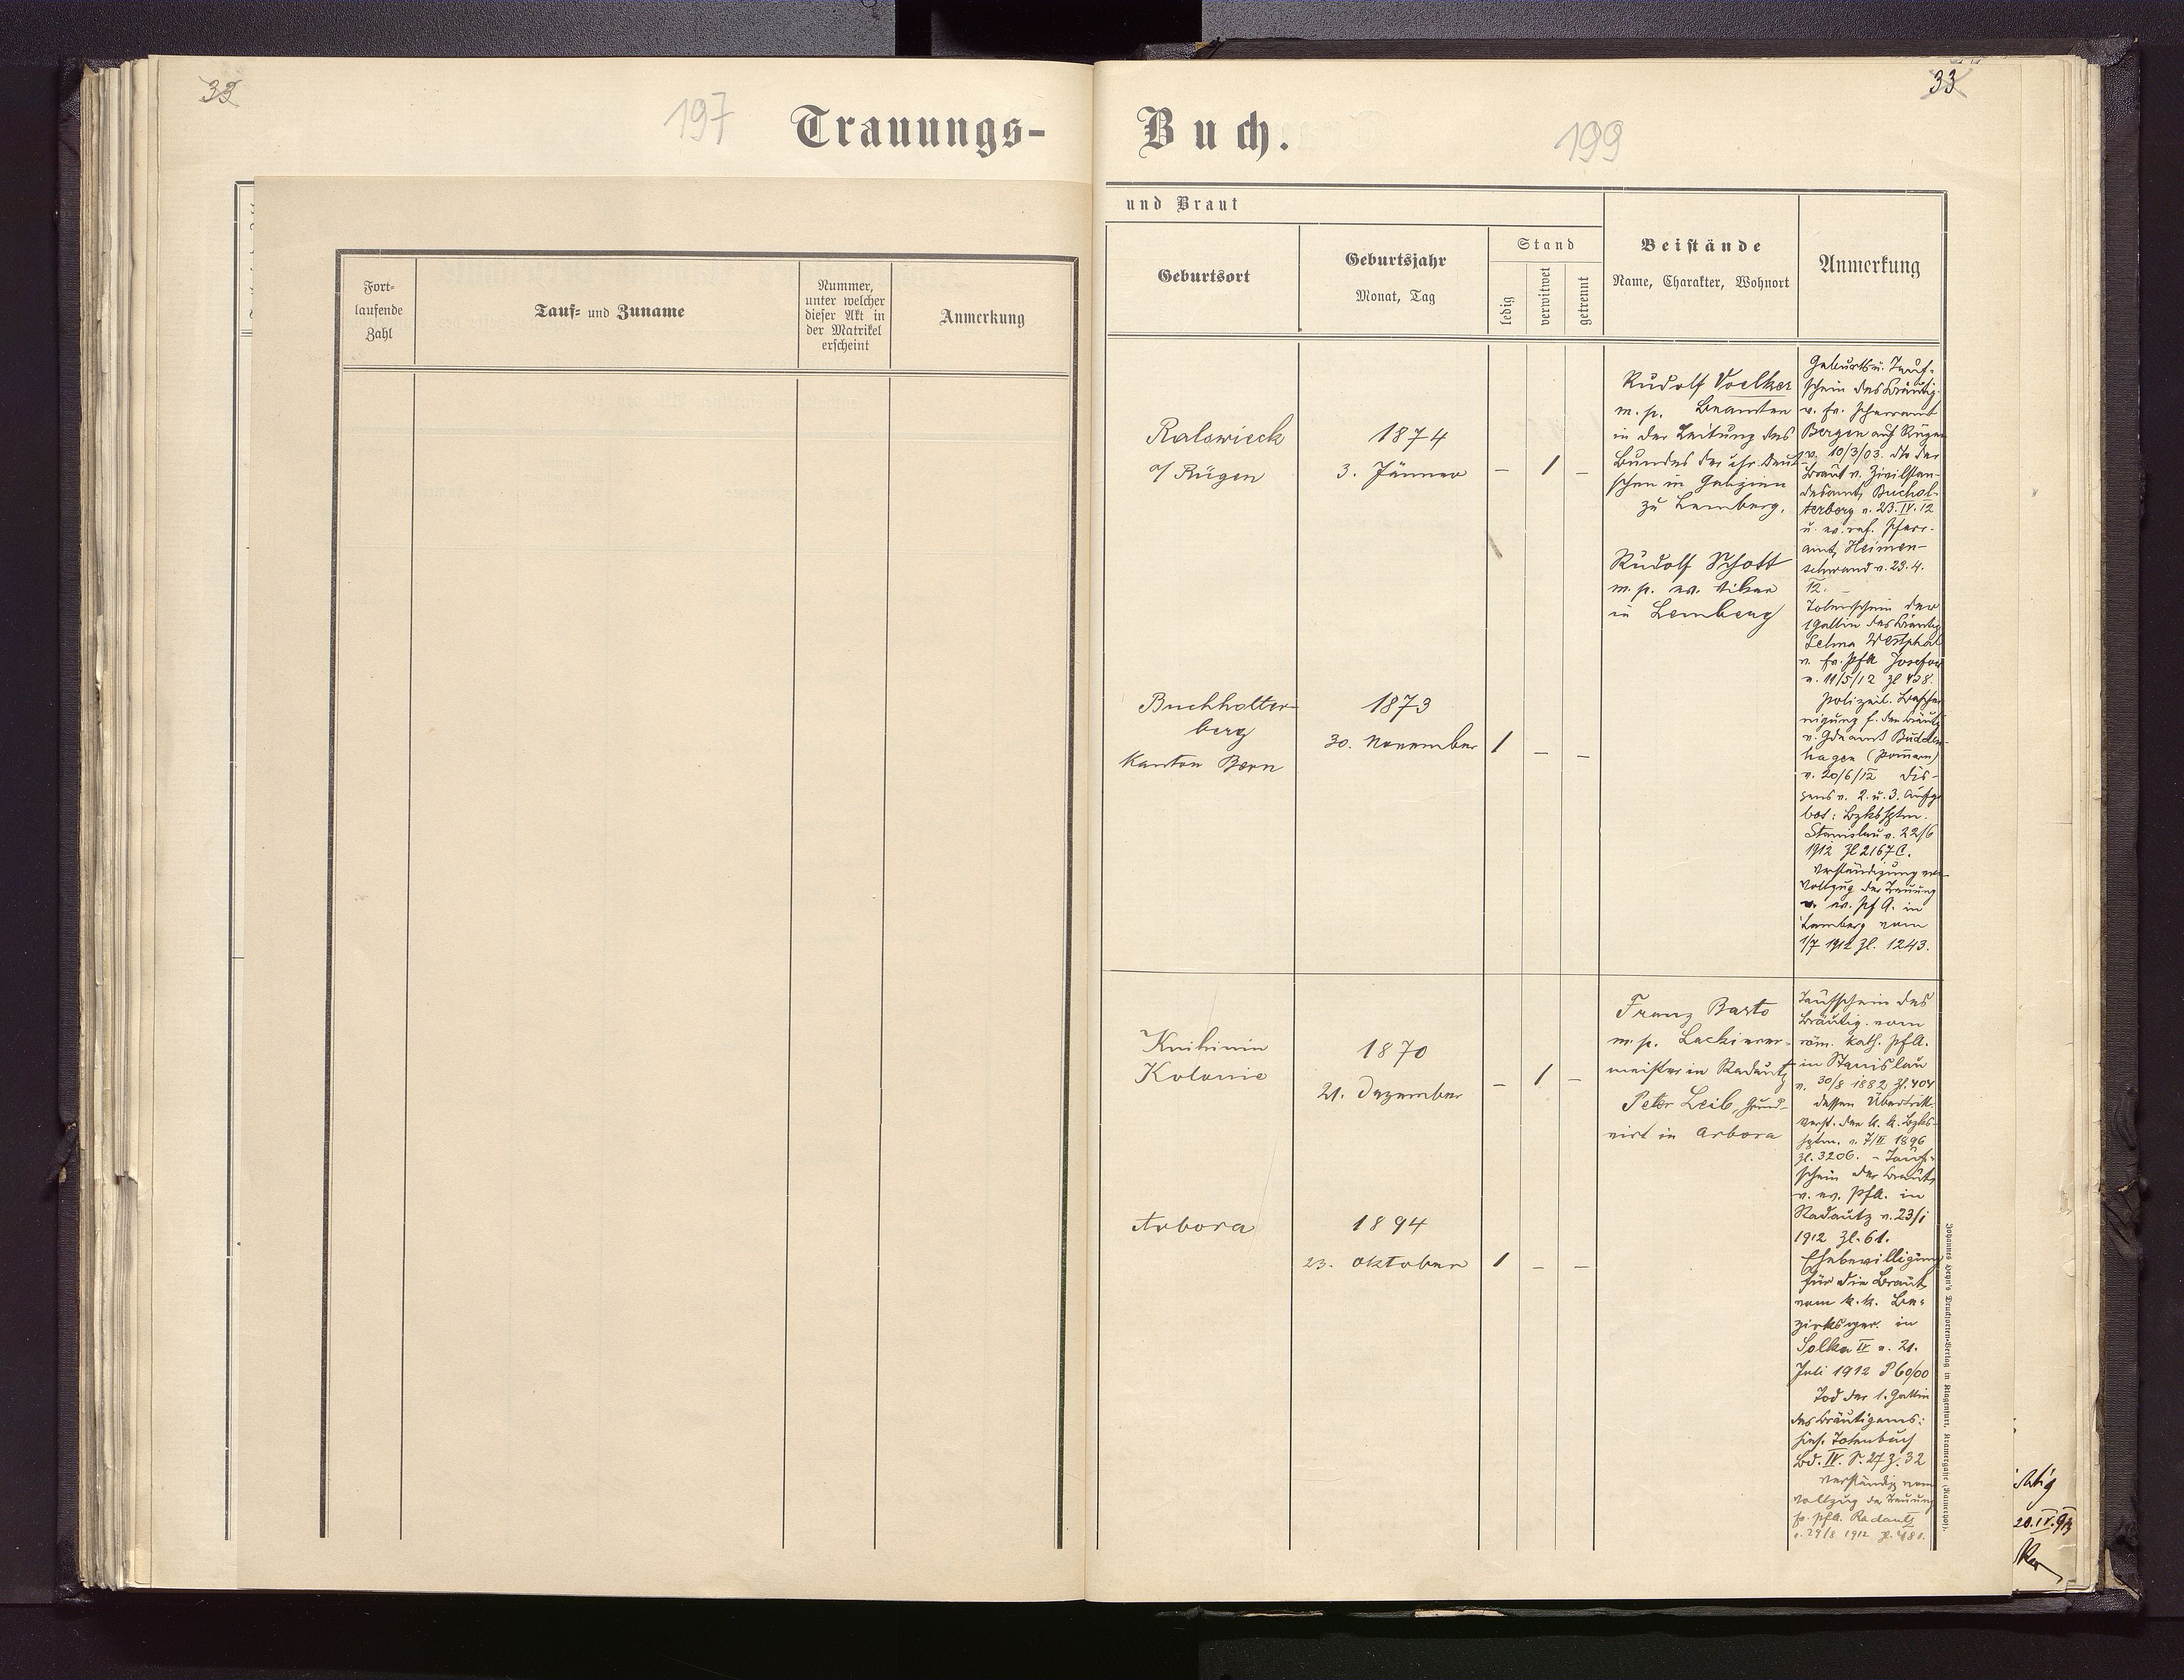 33
197
Trauungs-
Fort-
laufende
Zahl
Tauf- und Zuname
Nummer,
unter welcher
dieser Akt in
der Matrikel
erscheint
Anmerkung
33
Buch.
199
und Braut
Geburtsort
Geburtsjahr
Monat, Tag
Stand
ledig
verwitwet
getrennt
Beistände
Name, Charakter, Wohnort
Anmerkung
Ralswieck
a/ Rügen
1874
3. Jänner
– 1 –
Rudolf Voelker
m. p. Beamter
in der Leitung des
Bundes der chr. Deut-
schen in Galizien
zu Lemberg.
Rudolf Schott
m. p. ev. Vikar
in Lemberg
Geburts u. Tauf-
schein des Bräutig.
v. ev. Pfarramt
Bergen auf Rügen
v. 10/3/03. dto der
Braut v. Zivilstan-
desamt Buchol-
terberg v. 23.IV.12
u. ev. ref. Pfarr-
amt Heimen-
schwand v. 23.4.
12. –
Totenschein der
1 Gattin des Bräutig
Selma Westphal
v. ev. PfA Josefow
v. 11/5/12 Zl 428.
Polizeil. Beschei-
nigung f. den Bräutg
v. Gdeamt Budden-
hagen (Pommern)
v. 20/6/12 Dis-
pens v. 2. u. 3. Aufge
bot: Bzkshptm.
Stanislau v. 22/6
1912 Zl 2167C.
Verständigung vom
Vollzug der Trauung
v. ev. Pf A. in
Lemberg vom
1/7 1912 Zl. 1243.
Buchholter-
berg
Kanton Bern
1873
30. November
1 – –
Knihinin
Kolonie
1870
21. Dezember
– 1 –
Franz Barto
m. p. Lackierer-
meister in Radautz
Peter Leib, Grund-
wirt in Arbora
Taufschein des
Bräutig. vom
röm. kath. PfA.
in Stanislau
v. 30/8 1882 Zl. 404
dessen Übertritt:
verst. der k. k. Bzks-
hptm. v. 7/II 1896
Zl. 3206. – Tauf-
schein der Braut
v. ev. PfA. in
Radautz v. 23/1
1912 Zl. 61.
Ehebewilligung
für die Braut
vom k. k. Be-
zirksger. in
Solka IV v. 21.
Juli 1912 P 60/00
Tod der 1. Gattin
des Bräutigams:
hies. Totenbuch
Bd. IV. S. 27 Z. 32
Verständig vom
Vollzug der Trauung
ev. PfA. Radautz
v. 29/8 1912 Zl. 481.
Arbora
1894
23. Oktober
1 – –
Johannes Heyn's Drucksorten-Verlag in Klagenfurt, Kramergasse (Kanzeihof).
20.IV.93